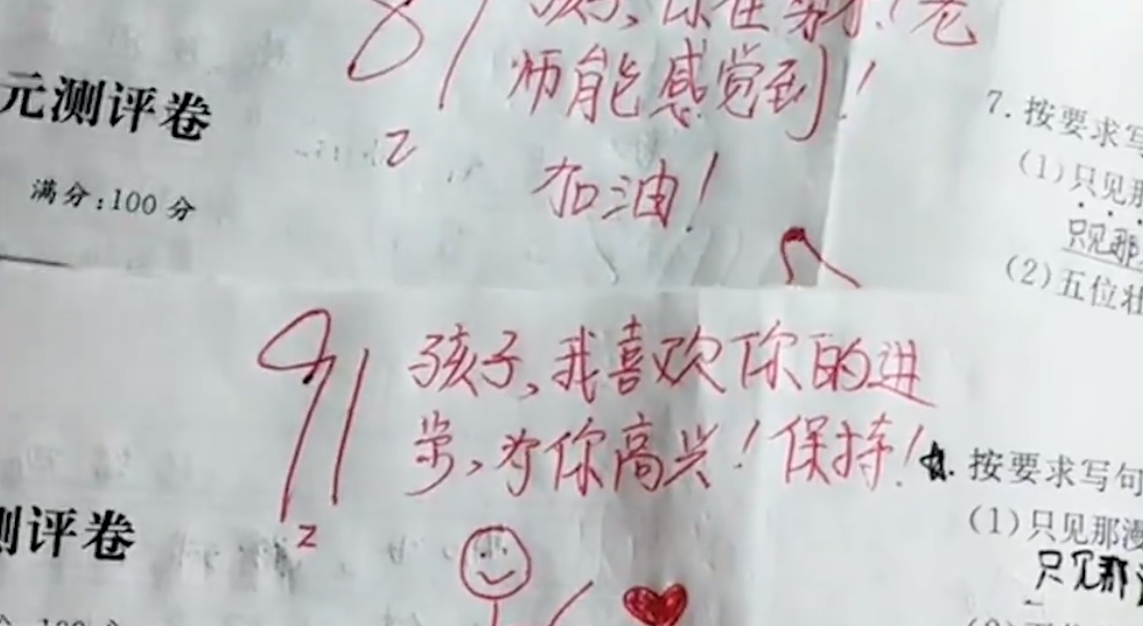 81
孩子,你在努力!老
师能感觉到!
2
加油!
元测评卷
满分:100分
7.按要求写
(1)只见那
只见那
(2)五位壮
91
孩子,我喜欢你的进
步,为你高兴!保持!
2
测评卷
按要求写句
(1)只见那漫
只见那